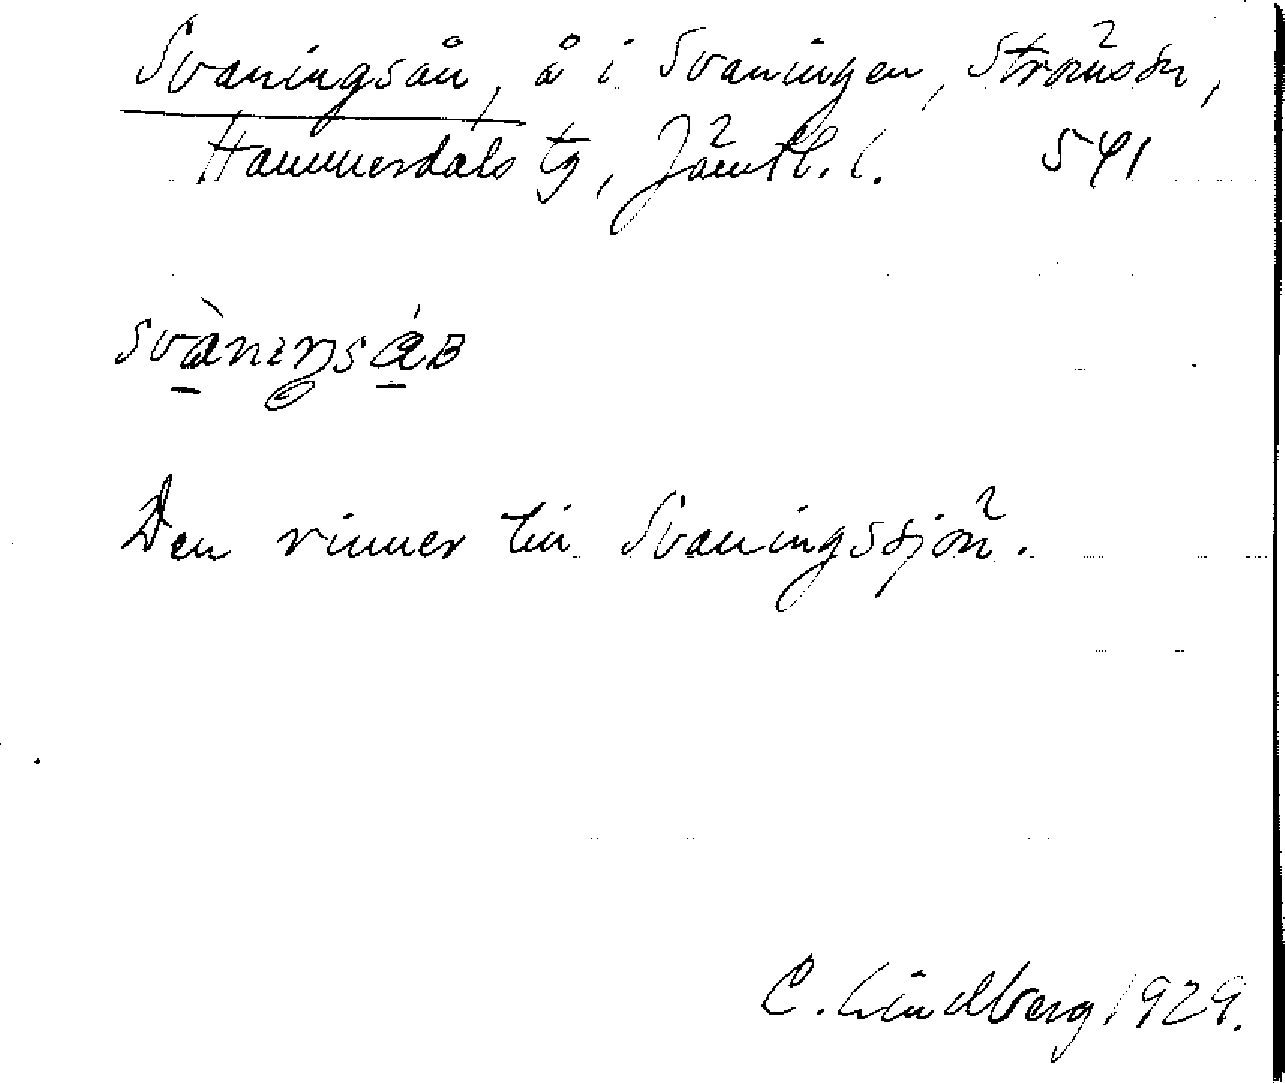 Svaningsån, å i Svaningen, Ströms sn,
Hammerdals tg, Jämtl. l. 541
Den rinner till Svaningssjön.
C. Lindberg 1929.